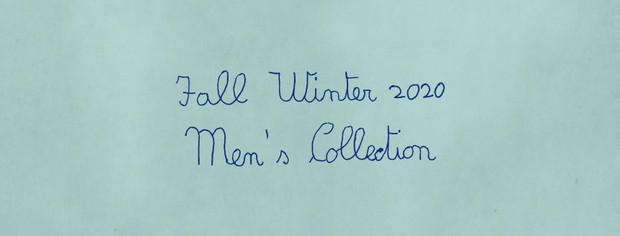 Fall Winter 2020
Men's Collection